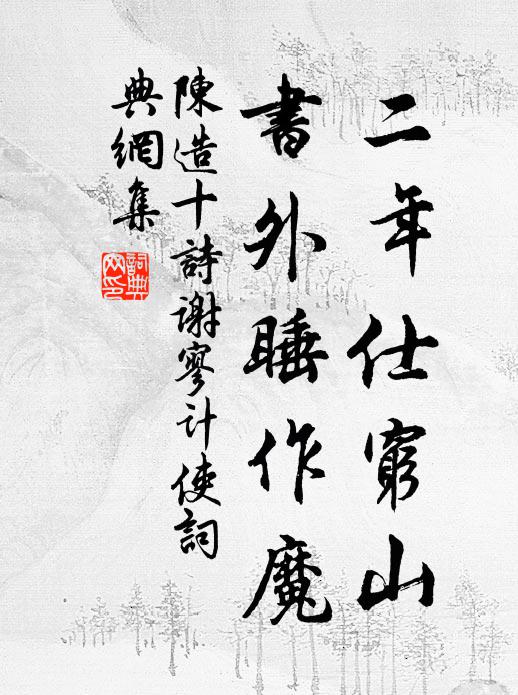 二年仕窮山
書外睡作魔
陳造十詩謝寥計使詞
典網集
詞典
网印